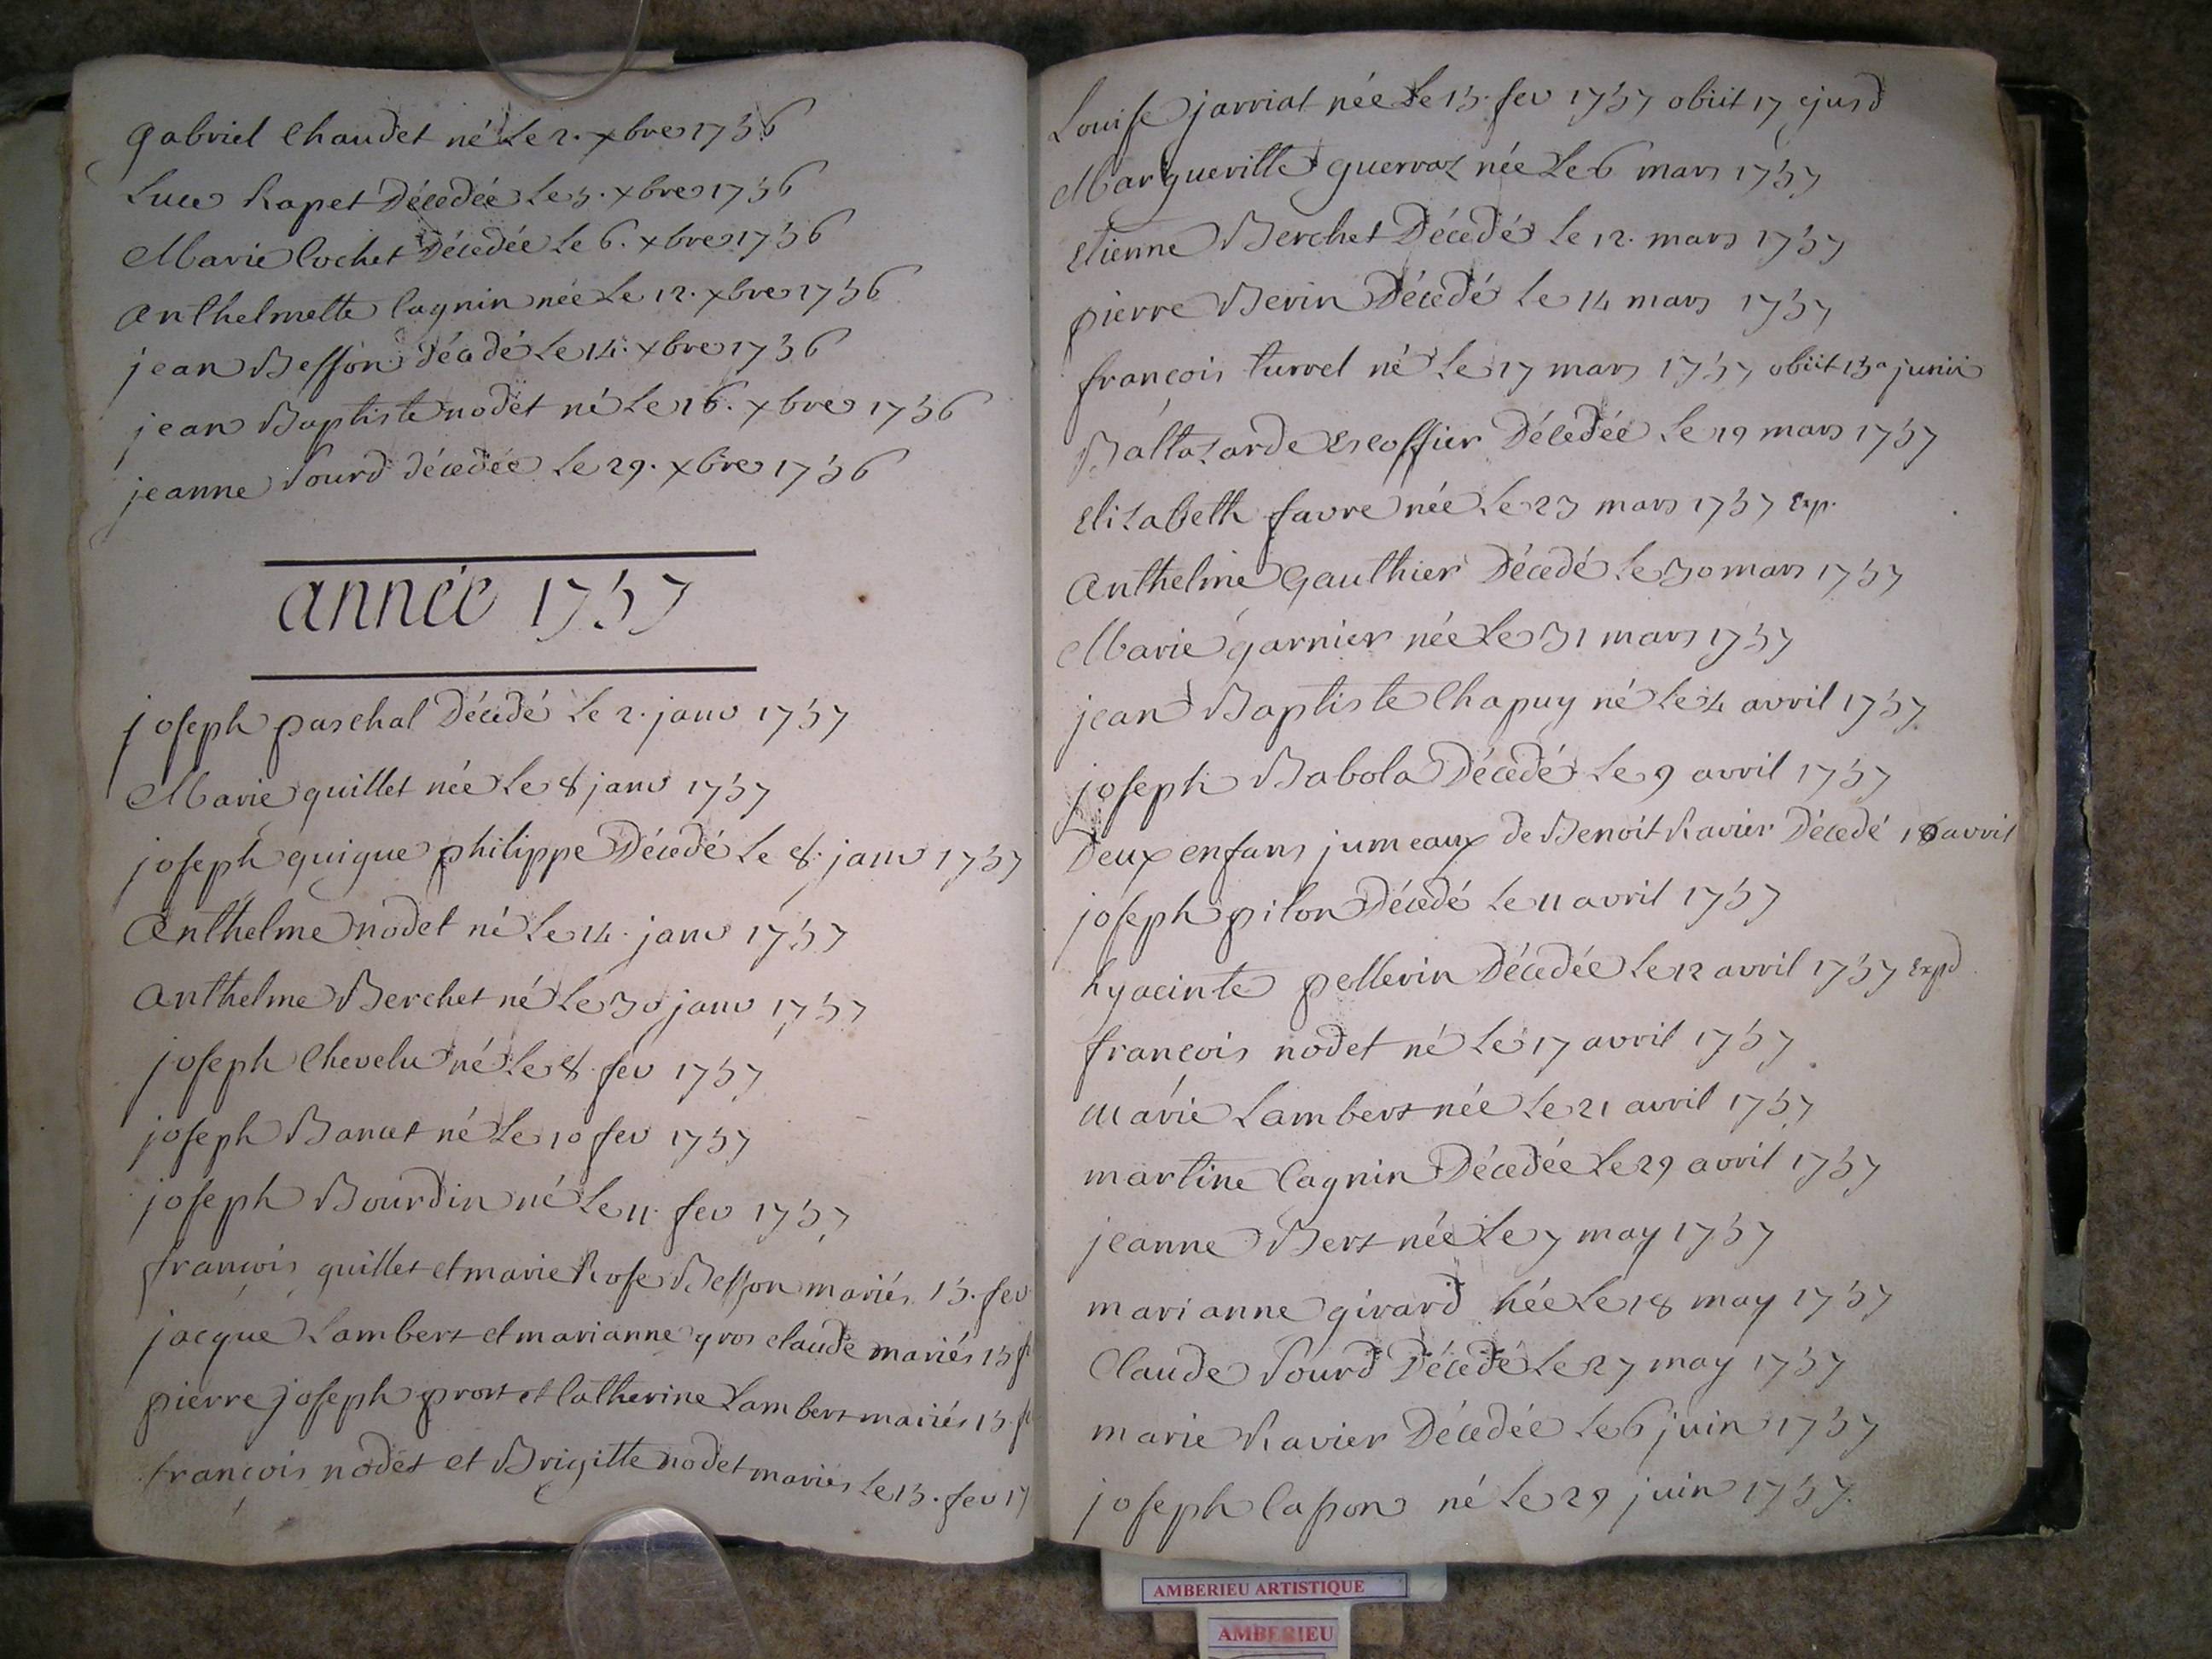 Gabriel Chaudet né Le 2. xbre 1736
Luce Rapet Décedée Le 3. xbre 1736
Marie Cochet Décedée Le 6. xbre 1736
Anthelmette Cagnin née Le 12. xbre 1736
jean Besson Décedé Le 14. xbre 1736
jean Baptiste nodet né Le 16. xbre 1736
jeanne Sourd décedée Le 29. xbre 1736
année 1737
joseph paschal Décedé Le 2. janv 1737
Marie guillet née Le 8 janv 1737
joseph guigue philippe Décedé Le 8. janv 1737
Anthelme nodet né Le 14. janv 1737
Anthelme Berchet né Le 30 janv 1737
joseph Chevelu né Le 8 fev 1737
joseph Bancet né Le 10 fev 1737
joseph Bourdin né Le 11. fev 1737
françois guillet et marie Rose Besson mariés 13. fev
jacque Lambert et marianne gros claude mariés 13 f
pierre joseph prost et Catherine Lambert mariés 13 f
françois nodet et Brigitte nodet mariés Le 13. fev 17
Louise jarriat née Le 13. fev 1737 obiit 17 ejusd
Margueritte guerraz née Le 6 mars 1737
Etienne Berchet Décedé Le 12. mars 1737
pierre Bevin Décedé Le 14 mars 1737
françois turrel né Le 17 mars 1737 obiit 13a junii
Baltazarde Escoffier Décedée Le 19 mars 1737
Elizabeth favre née Le 23 mars 1737 Exp.
Anthelme Gauthier Décedé Le 30 mars 1737
Marie garnier née Le 31 mars 1737
jean Baptiste Chapuy né Le 4 avril 1737
joseph Babola Décedé Le 9 avril 1737
Deux enfans jumeaux de Benoit Ravier Décedé 10 avril
joseph pilon Décedé Le 11 avril 1737
hyacinte pellerin Décedée Le 12 avril 1737 Expd
françois nodet né Le 17 avril 1737
marie Lambert née Le 21 avril 1737
martine Cagnin Décedée Le 29 avril 1737
jeanne Bert née Le 7 may 1737
marianne girard née Le 18 may 1737
Claude Sourd Décedé Le 27 may 1737
marie Ravier Décedée Le 6 juin 1737
joseph Casson né Le 29 juin 1737.
AMBERIEU ARTISTIQUE
AMBERIEU